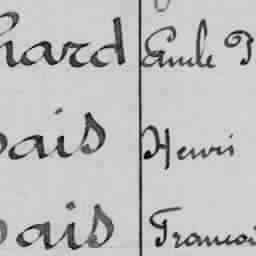 hard Emile P
bais Henri
bais Francoi